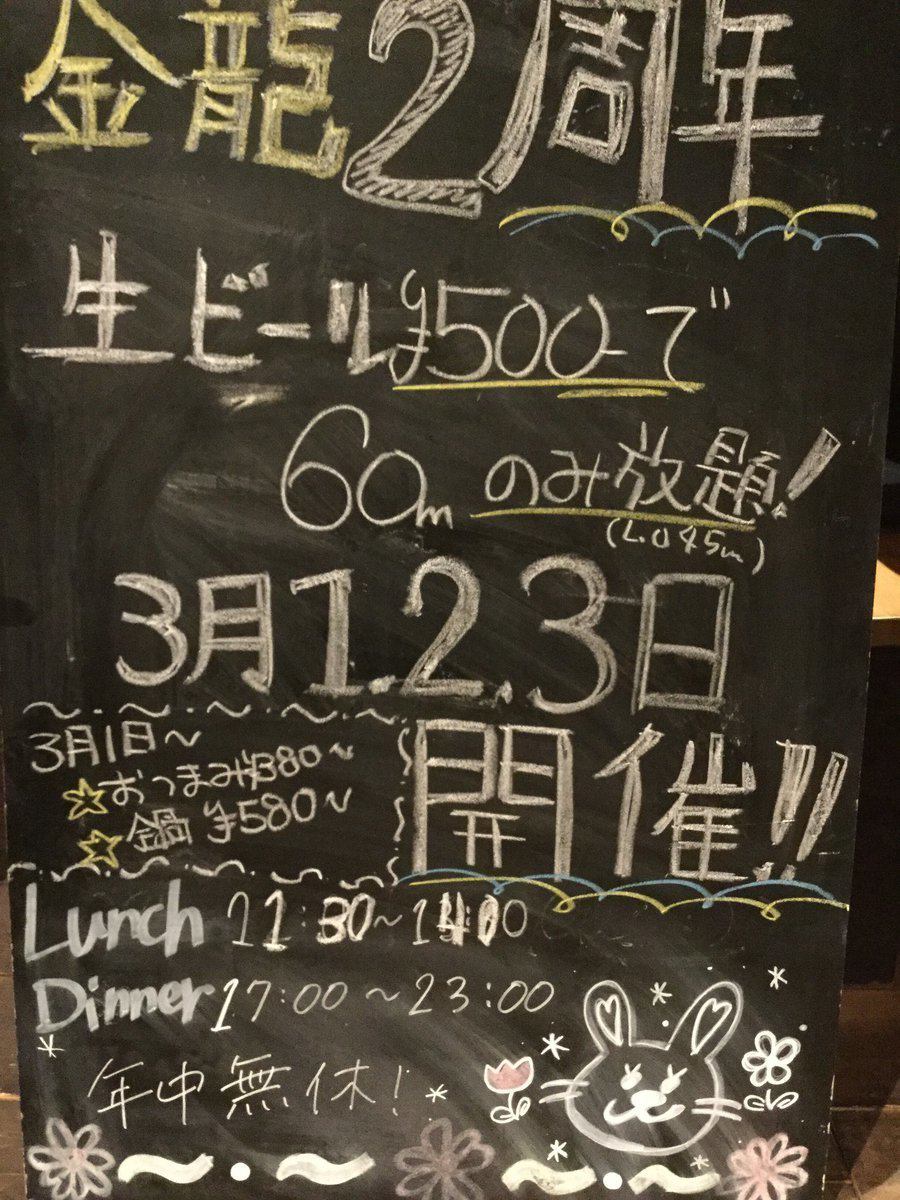 金龍2周年
生ビール¥500-で
60m のみ放題!
(L.O 45m)
3月1.2.3日
開催!!
3月1日~
☆おつまみ¥380~
☆鍋 ¥580~
Lunch 11:30~14:00
Dinner 17:00~23:00
年中無休!